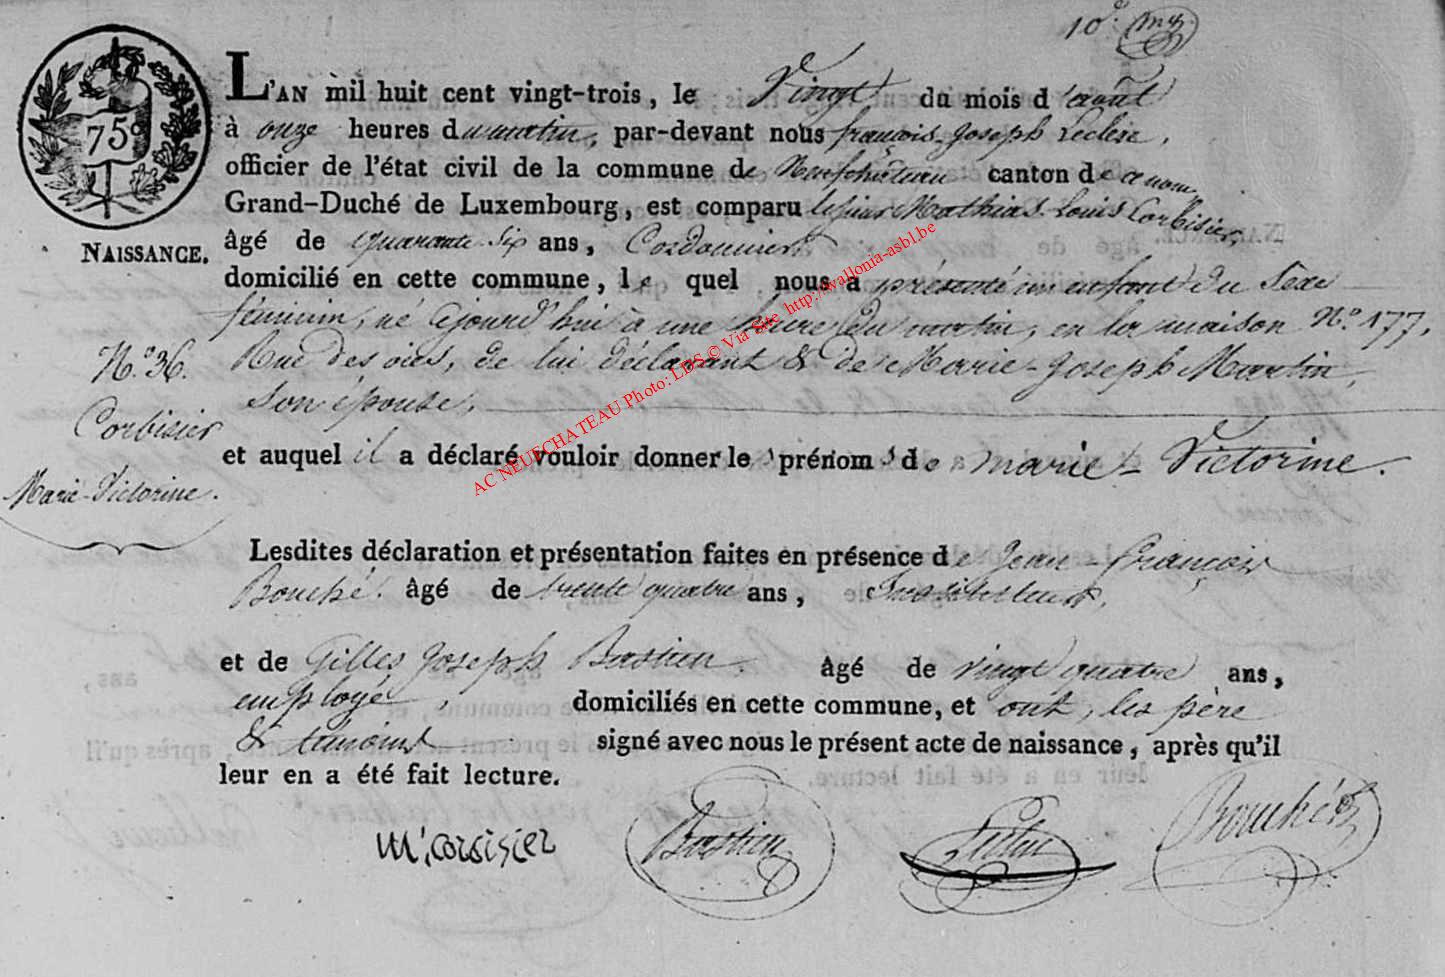 10e
75c
L'AN mil huit cent vingt-trois, le Vingt du mois d'août
à onze heures du matin, par-devant nous françois-Joseph Leclere,
officier de l'état civil de la commune de Neufchâteau canton de ce nom
Grand-Duché de Luxembourg, est comparu le sieur Mathias-Louis Corbisier,
NAISSANCE.
âgé de quarante-six ans, Cordonnier,
domicilié en cette commune, le quel nous a présenté un enfant du Sexe
féminin, né cejourd'hui à une heure du matin, en la maison No. 177,
No. 36.
Rue des oies, de lui déclarant & de Marie-Joseph Martin
Son épouse,
Corbisier
Marie-Victorine.
et auquel il a déclaré vouloir donner les prénoms de Marie-Victorine.
Lesdites déclaration et présentation faites en présence de Jean-François
Bouché âgé de trente quatre ans, Instituteur,
et de Gilles Joseph Bastien âgé de vingt quatre ans,
employé, domiciliés en cette commune, et ont, les père
& temoins signé avec nous le présent acte de naissance, après qu'il
leur en a été fait lecture.
m: corbisier Bastien Bouché
AC NEUFCHATEAU Photo: LBS © Via Site http://wallonia-asbl.be